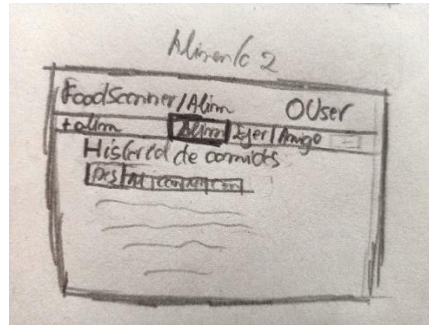 Alimento 2
FoodScanner/Alim OUser
+alim Alim Ejer Amigo
Historial de comidas
Des